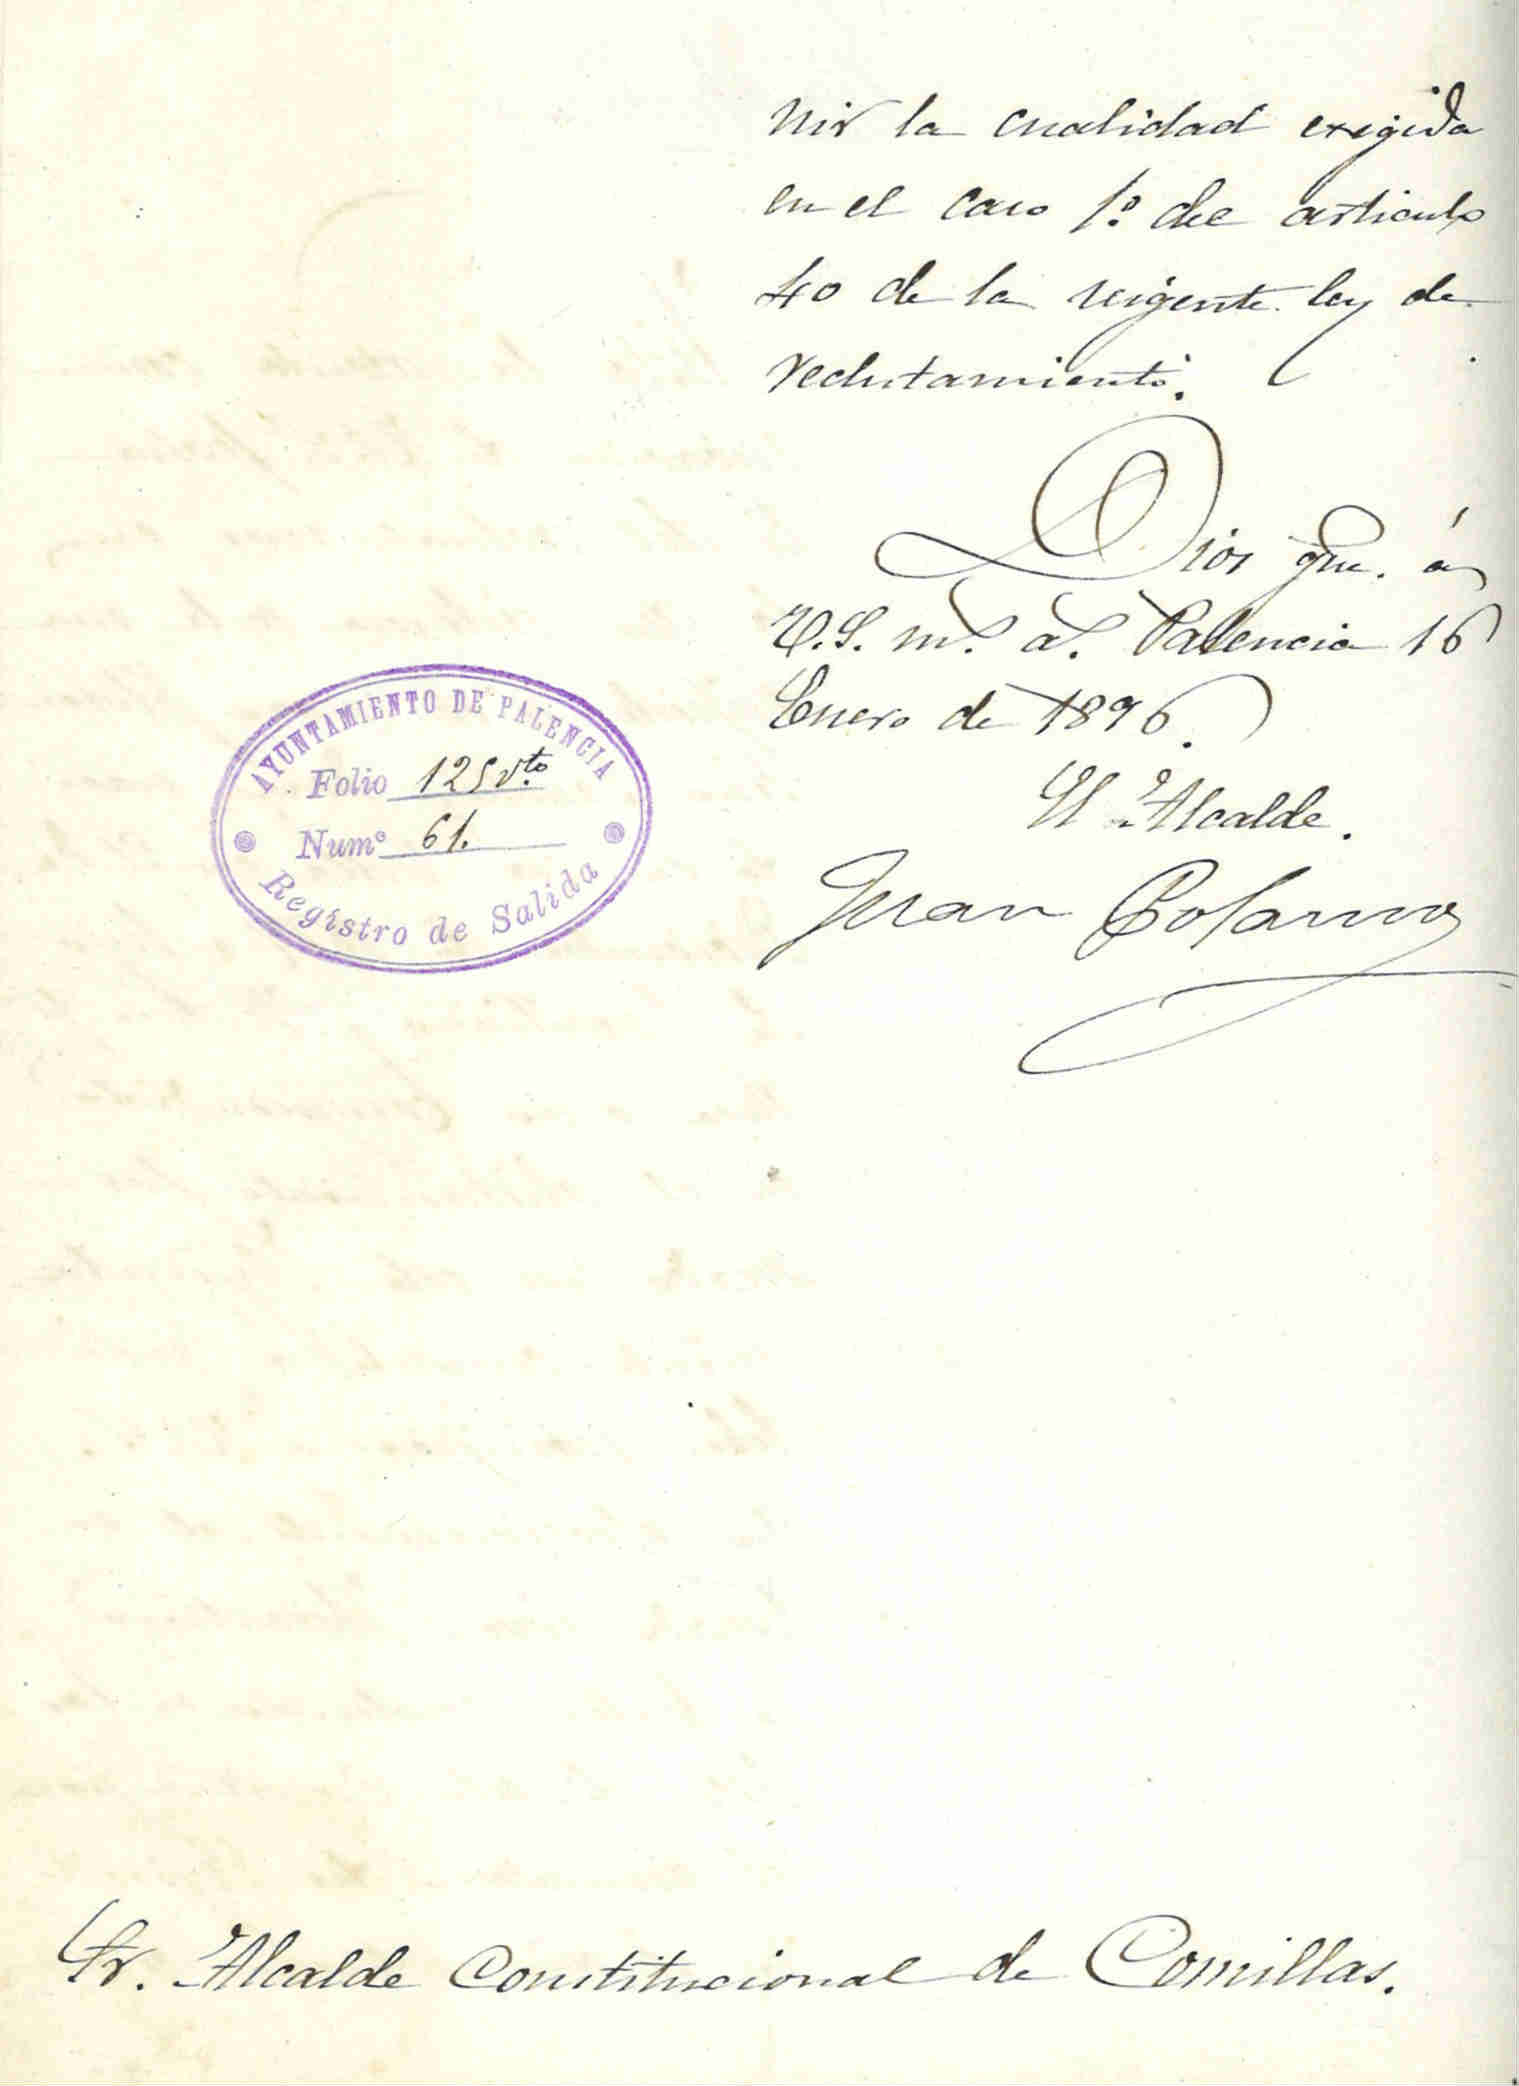 nir la cualidad exigida
en el caso 1º del articulo
40 de la vigente ley de
reclutamiento.
Dios gue. á
V.S. m.s a.s Palencia 16
Enero de 1896.
El Alcalde.
Juan Polanco
AYUNTAMIENTO DE PALENCIA
Folio 125 vto
Numº 61.
Registro de Salida
Sr. Alcalde Constitucional de Comillas.